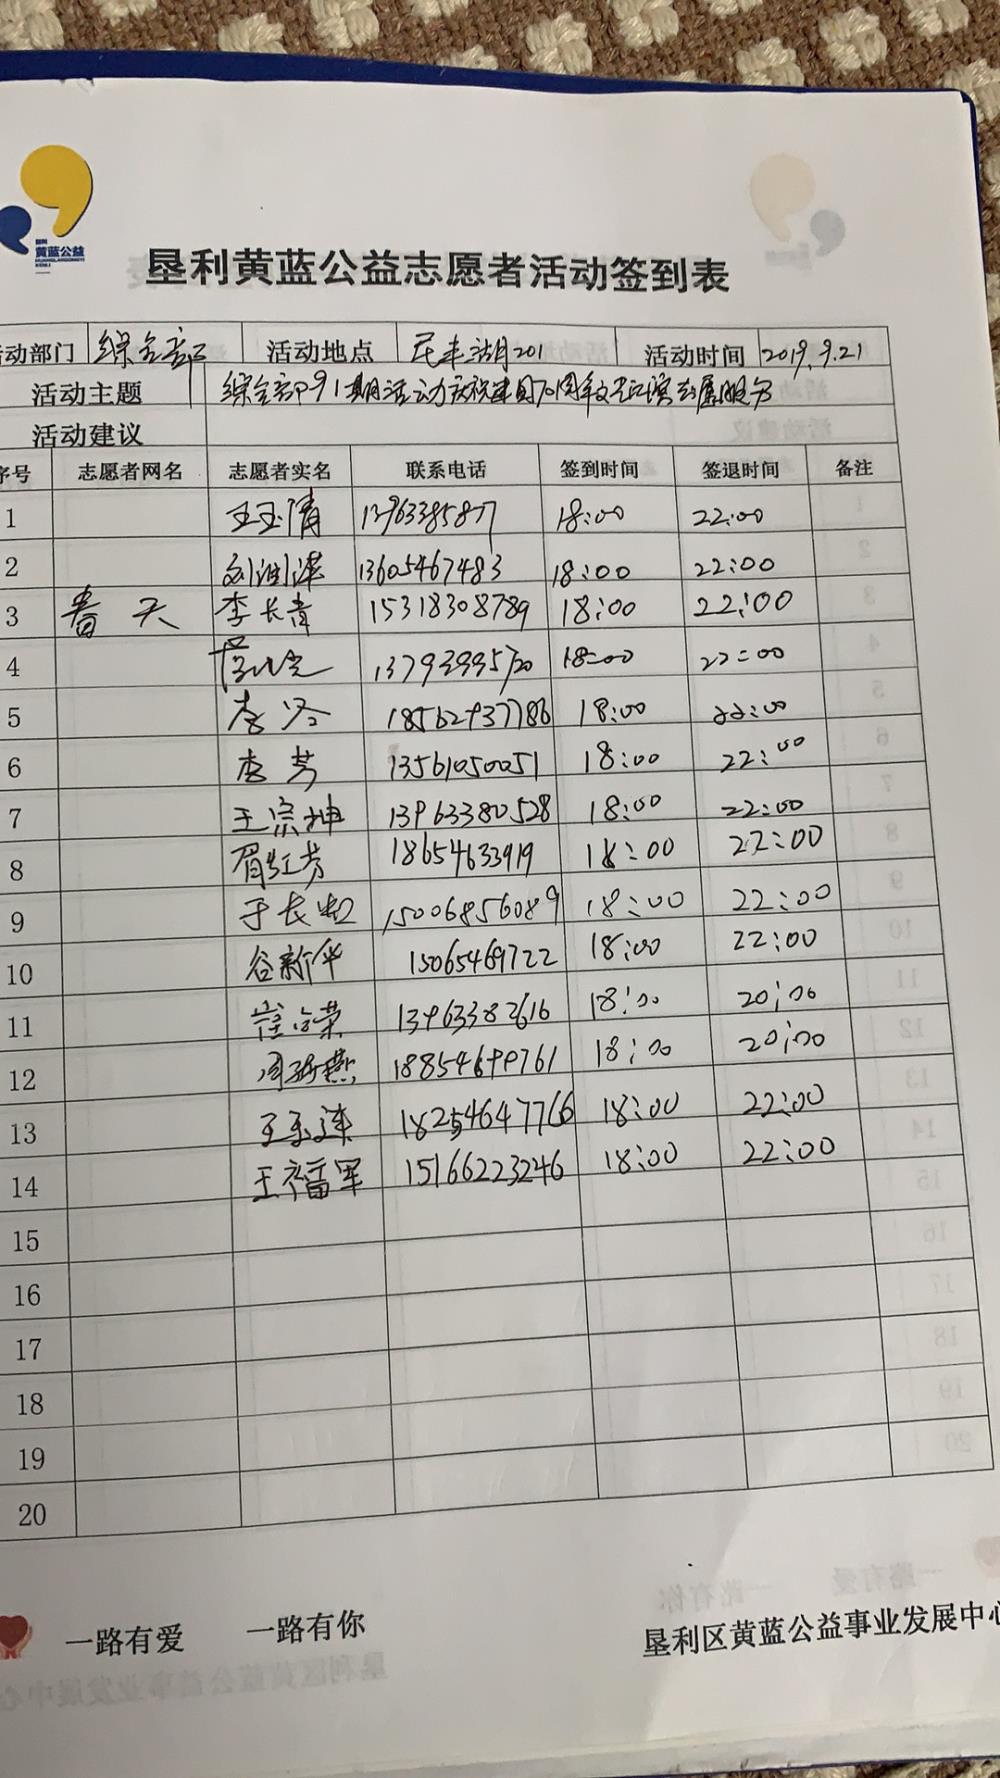 黄蓝公益
垦利黄蓝公益志愿者活动签到表
活动部门 综合部 活动地点 民丰湖201 活动时间 2019.9.21
活动主题 综合部91期活动庆祝建国70周年文艺汇演
活动建议
序号 志愿者网名 志愿者实名 联系电话 签到时间 签退时间 备注
1 王玉清 18:00 22:00
2 刘润泽 13605467483 18:00 22:00
3 春天 李长青 15318308789 18:00 22:00
4 18:00 22:00
5 18562937786 18:00 22:00
6 李芳 13561050051 18:00 22:00
7 王宗坤 13963380528 18:00 22:00
8 18654633919 18:00 22:00
9 于长 15006856089 18:00 22:00
10 谷新华 15065469722 18:00 22:00
11 荣 13963382616 18:00 20:00
12 燕 18:00 20:00
13 王玉连 18254647766 18:00 22:00
14 王福军 15166223246 18:00 22:00
15
16
17
18
19
20
一路有爱 一路有你
垦利区黄蓝公益事业发展中心